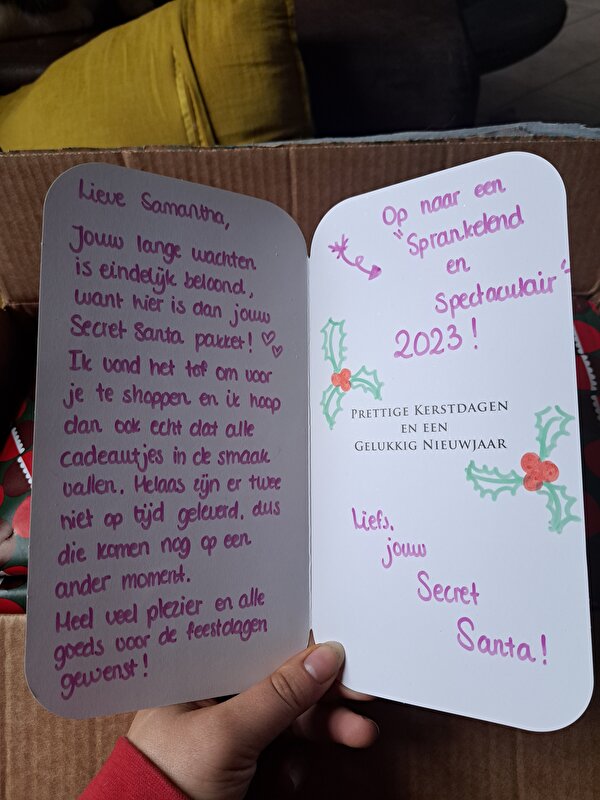 Lieve Samantha,
Jouw lange wachten
is eindelijk beloond,
want hier is dan jouw
Secret Santa pakket! ♡♡
Ik vond het tof om voor
je te shoppen en ik hoop
dan ook echt dat alle
cadeautjes in de smaak
vallen. Helaas zijn er twee
niet op tijd geleverd, dus
die komen nog op een
ander moment.
Heel veel plezier en alle
goeds voor de feestdagen
gewenst!
Op naar een
"Sprankelend
en
Spectaculair"
2023!
Prettige Kerstdagen
en een
Gelukkig Nieuwjaar
Liefs,
jouw
Secret
Santa!